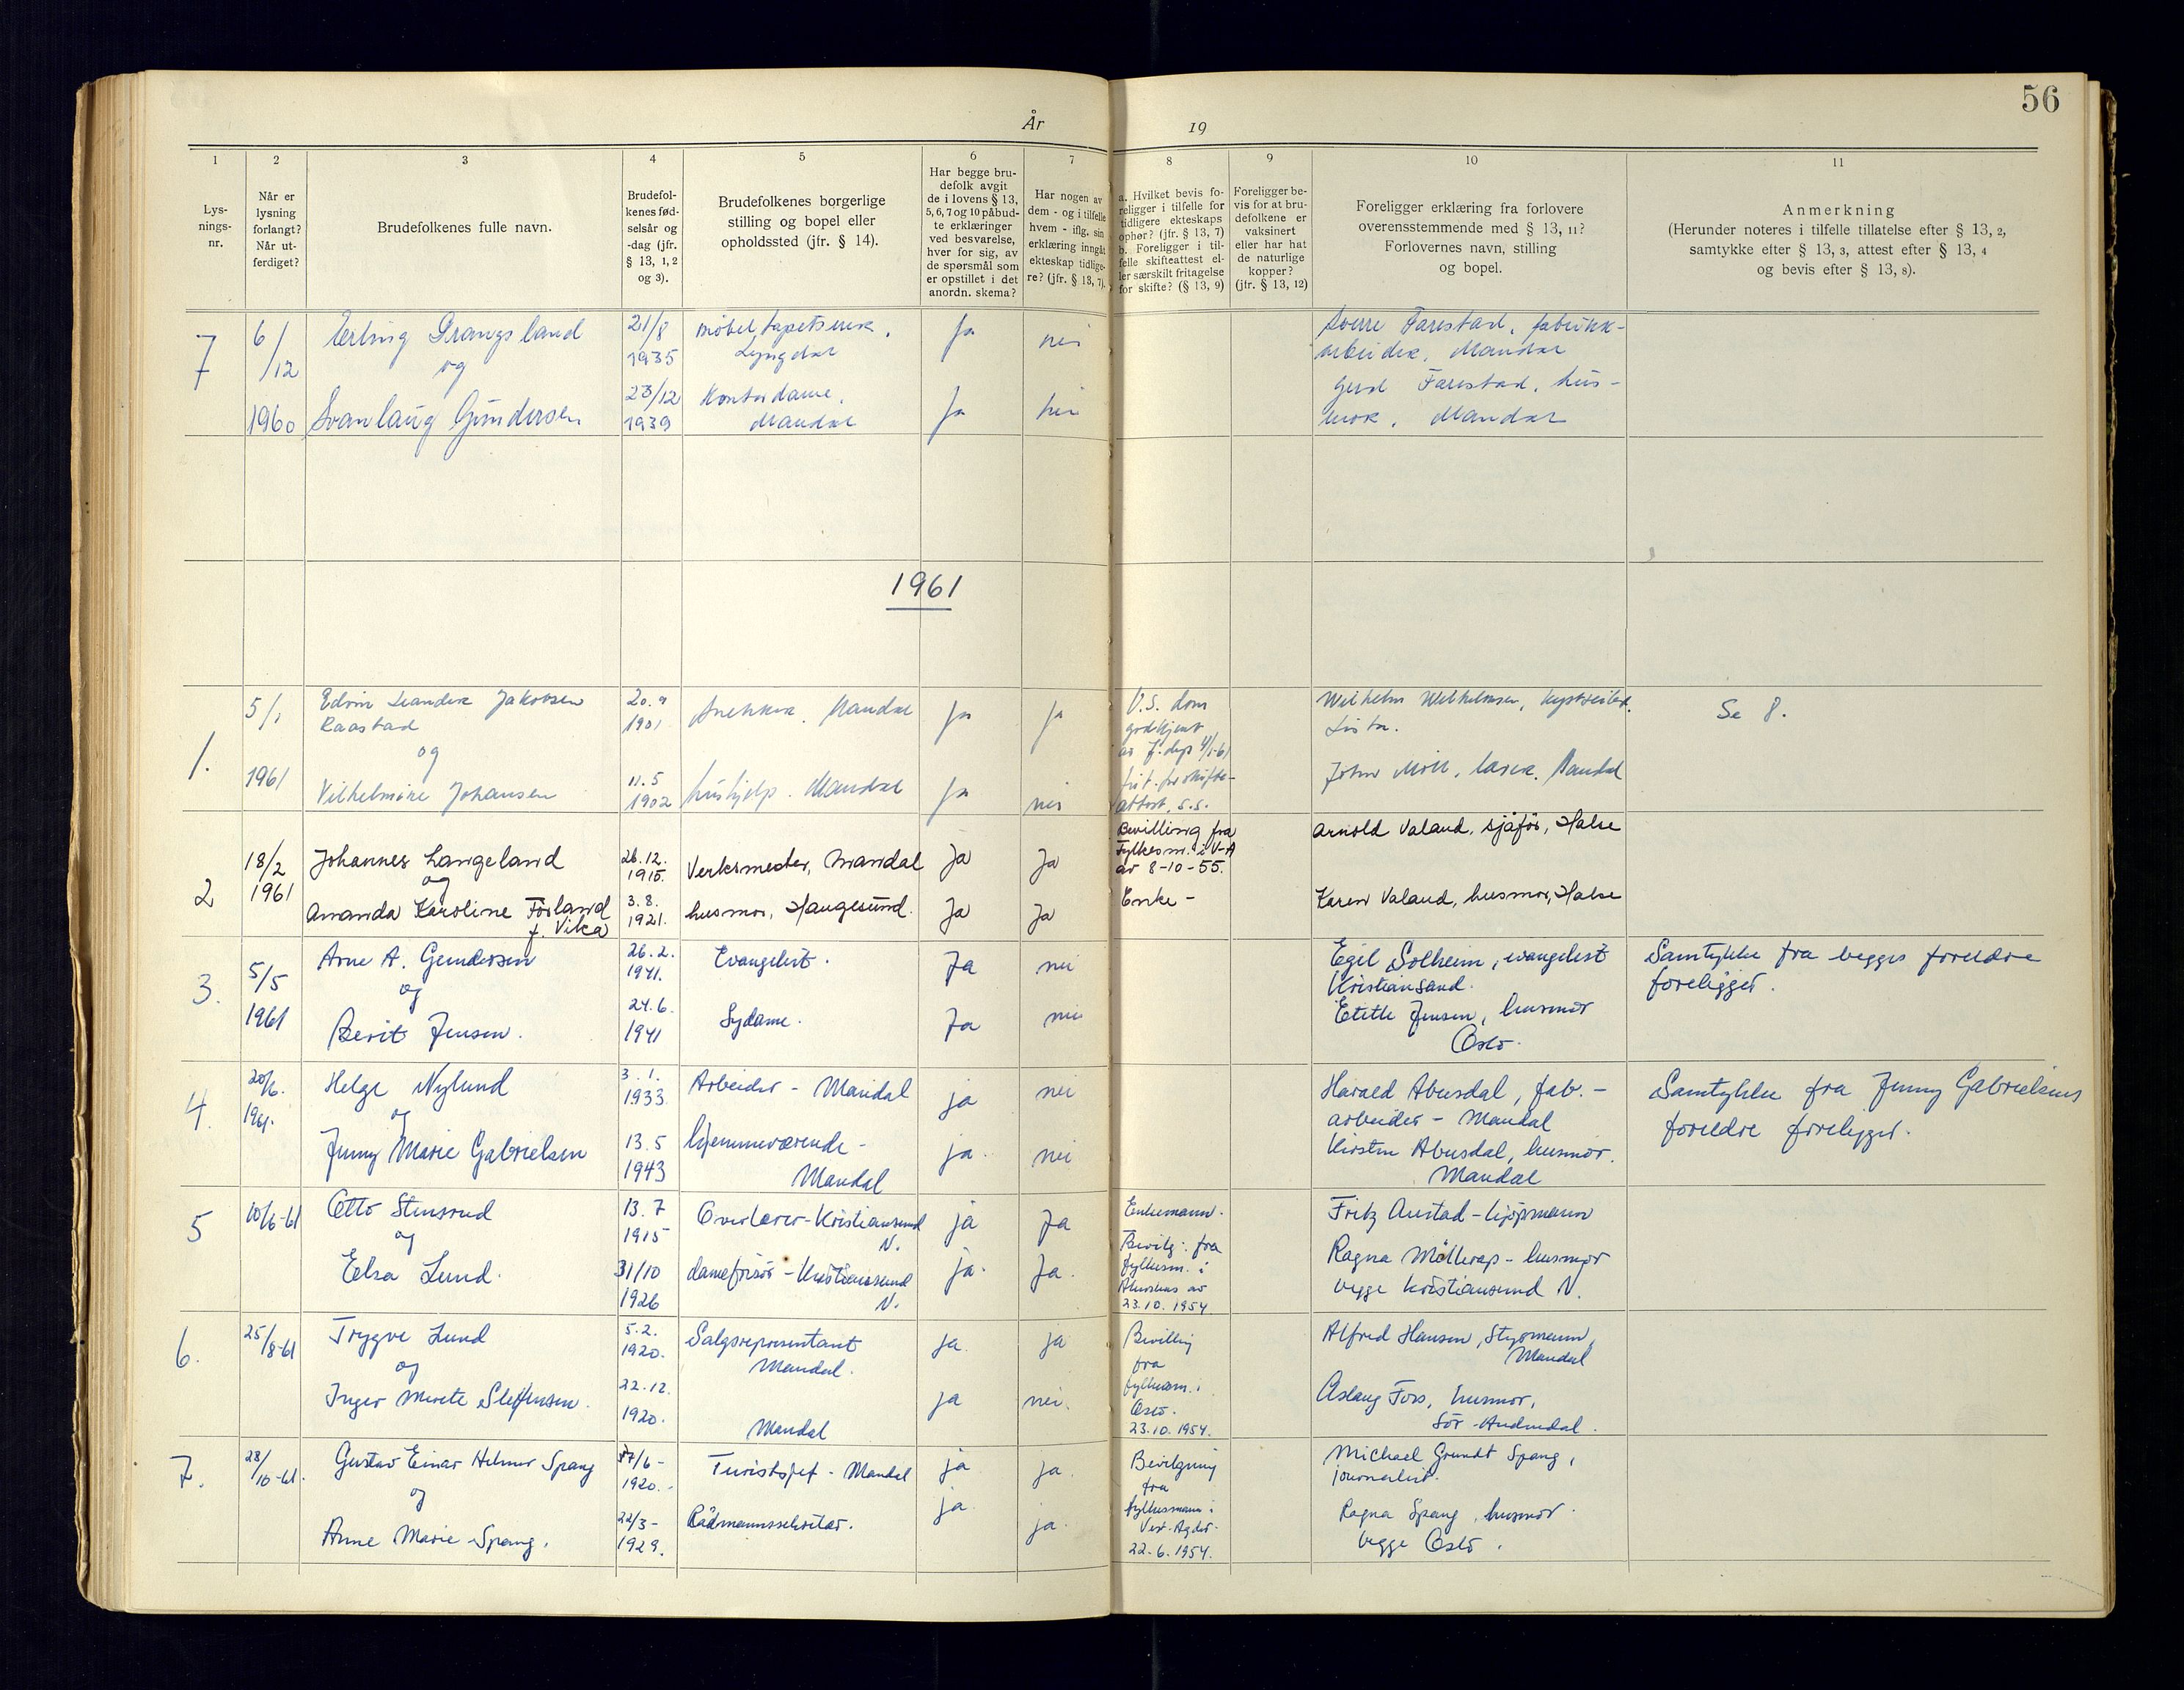 56
År 19
1 2 3 4 5 6 7 8 9 10 11
Lys-
nings-
nr.
Når er
lysning
forlangt?
Når ut-
ferdiget?
Brudefolkenes fulle navn.
Brudefol-
kenes fød-
selsår og
-dag (jfr.
§ 13, 1, 2
og 3).
Brudefolkenes borgerlige
stilling og bopel eller
opholdssted (jfr. § 14).
Har begge bru-
defolk avgit
de i lovens § 13,
5, 6, 7 og 10 påbud-
te erklæringer
ved besvarelse,
hver for sig, av
de spørsmål som
er opstillet i det
anordn. skema?
Har nogen av
dem - og i tilfelle
hvem - iflg. sin
erklæring inngått
ekteskap tidlige-
re? (jfr. § 13, 7).
a. Hvilket bevis fo-
religger i tilfelle for
tidligere ekteskaps
ophør? (jfr. § 13, 7)
b. Foreligger i til-
felle skifteattest el-
ler særskilt fritagelse
for skifte? (§ 13, 9)
Foreligger be-
vis for at bru-
defolkene er
vaksinert
eller har hat
de naturlige
kopper?
(jfr. § 13, 12)
Foreligger erklæring fra forlovere
overensstemmende med § 13, 11?
Forlovernes navn, stilling
og bopel.
Anmerkning
(Herunder noteres i tilfelle tillatelse efter § 13, 2,
samtykke efter § 13, 3, attest efter § 13, 4
og bevis efter § 13, 8).
7
6/12
1960
Erling Drangsland
og
Svanlaug Gundersen
21/8
1935
23/12
1939
møbeltapetserer,
Lyngdal
Kontordame,
Mandal
Ja
Ja
nei
nei
Sverre Farestad, fabrikk-
arbeider, Mandal
Gerd Farestad, hus-
mor, Mandal
1961
1.
5/1
1961
Edvin Leander Jakobsen
Raastad
og
Vilhelmine Johansen
20.9
1901
11.5
1902
Snekker, Mandal
hushjelp, Mandal
Ja
Ja
Ja
nei
U.S. dom
godkjent
av J.dep 4/1-61
attest, s.s.
Wilhelm Wilhelmsen,
Lista.
John Moll, Mandal
Se 8.
2
18/2
1961
Johannes Langeland
og
Amanda Karoline Förland
f. Vika
26.12.
1915.
3.8.
1921.
Verksmester, Mandal
husmor, Haugesund.
Ja
Ja
Ja
Ja
Bevilling fra
Fylkesm. i V-A
av 8-10-55.
Enke -
Arnold Valand, sjåfør, Halse
Karen Valand, husmor, Halse
3.
5/5
1961
Arne A. Gundersen
og
Berit Jensen.
26.2.
1941.
24.6.
1941
Evangelist.
Sydame.
Ja
Ja
nei
nei
Egil Solheim, evangelist
Kristiansand.
Jensen, husmor
Oslo.
Samtykke fra begges foreldre
foreligger.
4.
20/6.
1961.
Helge Nylund
og
Jenny Marie Gabrielsen
3.1.
1933
13.5
1943
Arbeider - Mandal
hjemmeværende -
Mandal
ja
ja.
nei
nei
Harald Abusdal, fab.-
arbeider - Mandal
Kirsten Abusdal, husmor.
Mandal
Samtykke fra Jenny Gabrielsens
foreldre foreligger.
5
10/6-61
Otto Stensrud
og
Elsa Lund.
13.7
1915
31/10
1926
Overlærer-Kristiansund
N.
damefrisør - Kristiansund
N.
ja
ja.
Ja
Ja.
Enkemann.
Bevilg: fra
fylkesm. i
Akershus av
23.10.1954.
Fritz Austad - kjøpmann
Ragna Möllerop - husmor
begge Kristiansund N.
6.
25/8-61
Trygve Lund
og
Inger Merete Steffensen.
5.2.
1920.
22.12.
1920.
Salgsrepresentant
Mandal.
Mandal
ja.
ja
ja
nei.
Bevilling
fra
fylkesm. i
Oslo.
23.10.1954.
Alfred Hansen, Styrmann,
Mandal
Aslaug Foss, husmor,
Sör-Audnedal.
7.
28/10-61.
Gustav Einar Helmer Spang
og
Anne Marie Spang.
17/6-
1920.-
22/3-
1929.
Turistsjef - Mandal
Rådmannssekretær.
ja
ja.
ja.
ja.
Bevilgning
fra
fylkesmann i
Vest-Agder.
22.6.1954.
Michael Grundt Spang,
journalist.
Ragna Spang, husmor.
begge Oslo.